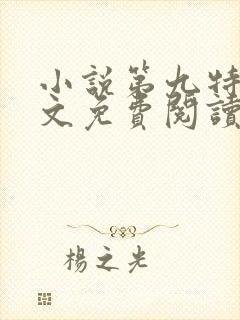 小說第九特
文免費閱讀
楊之光